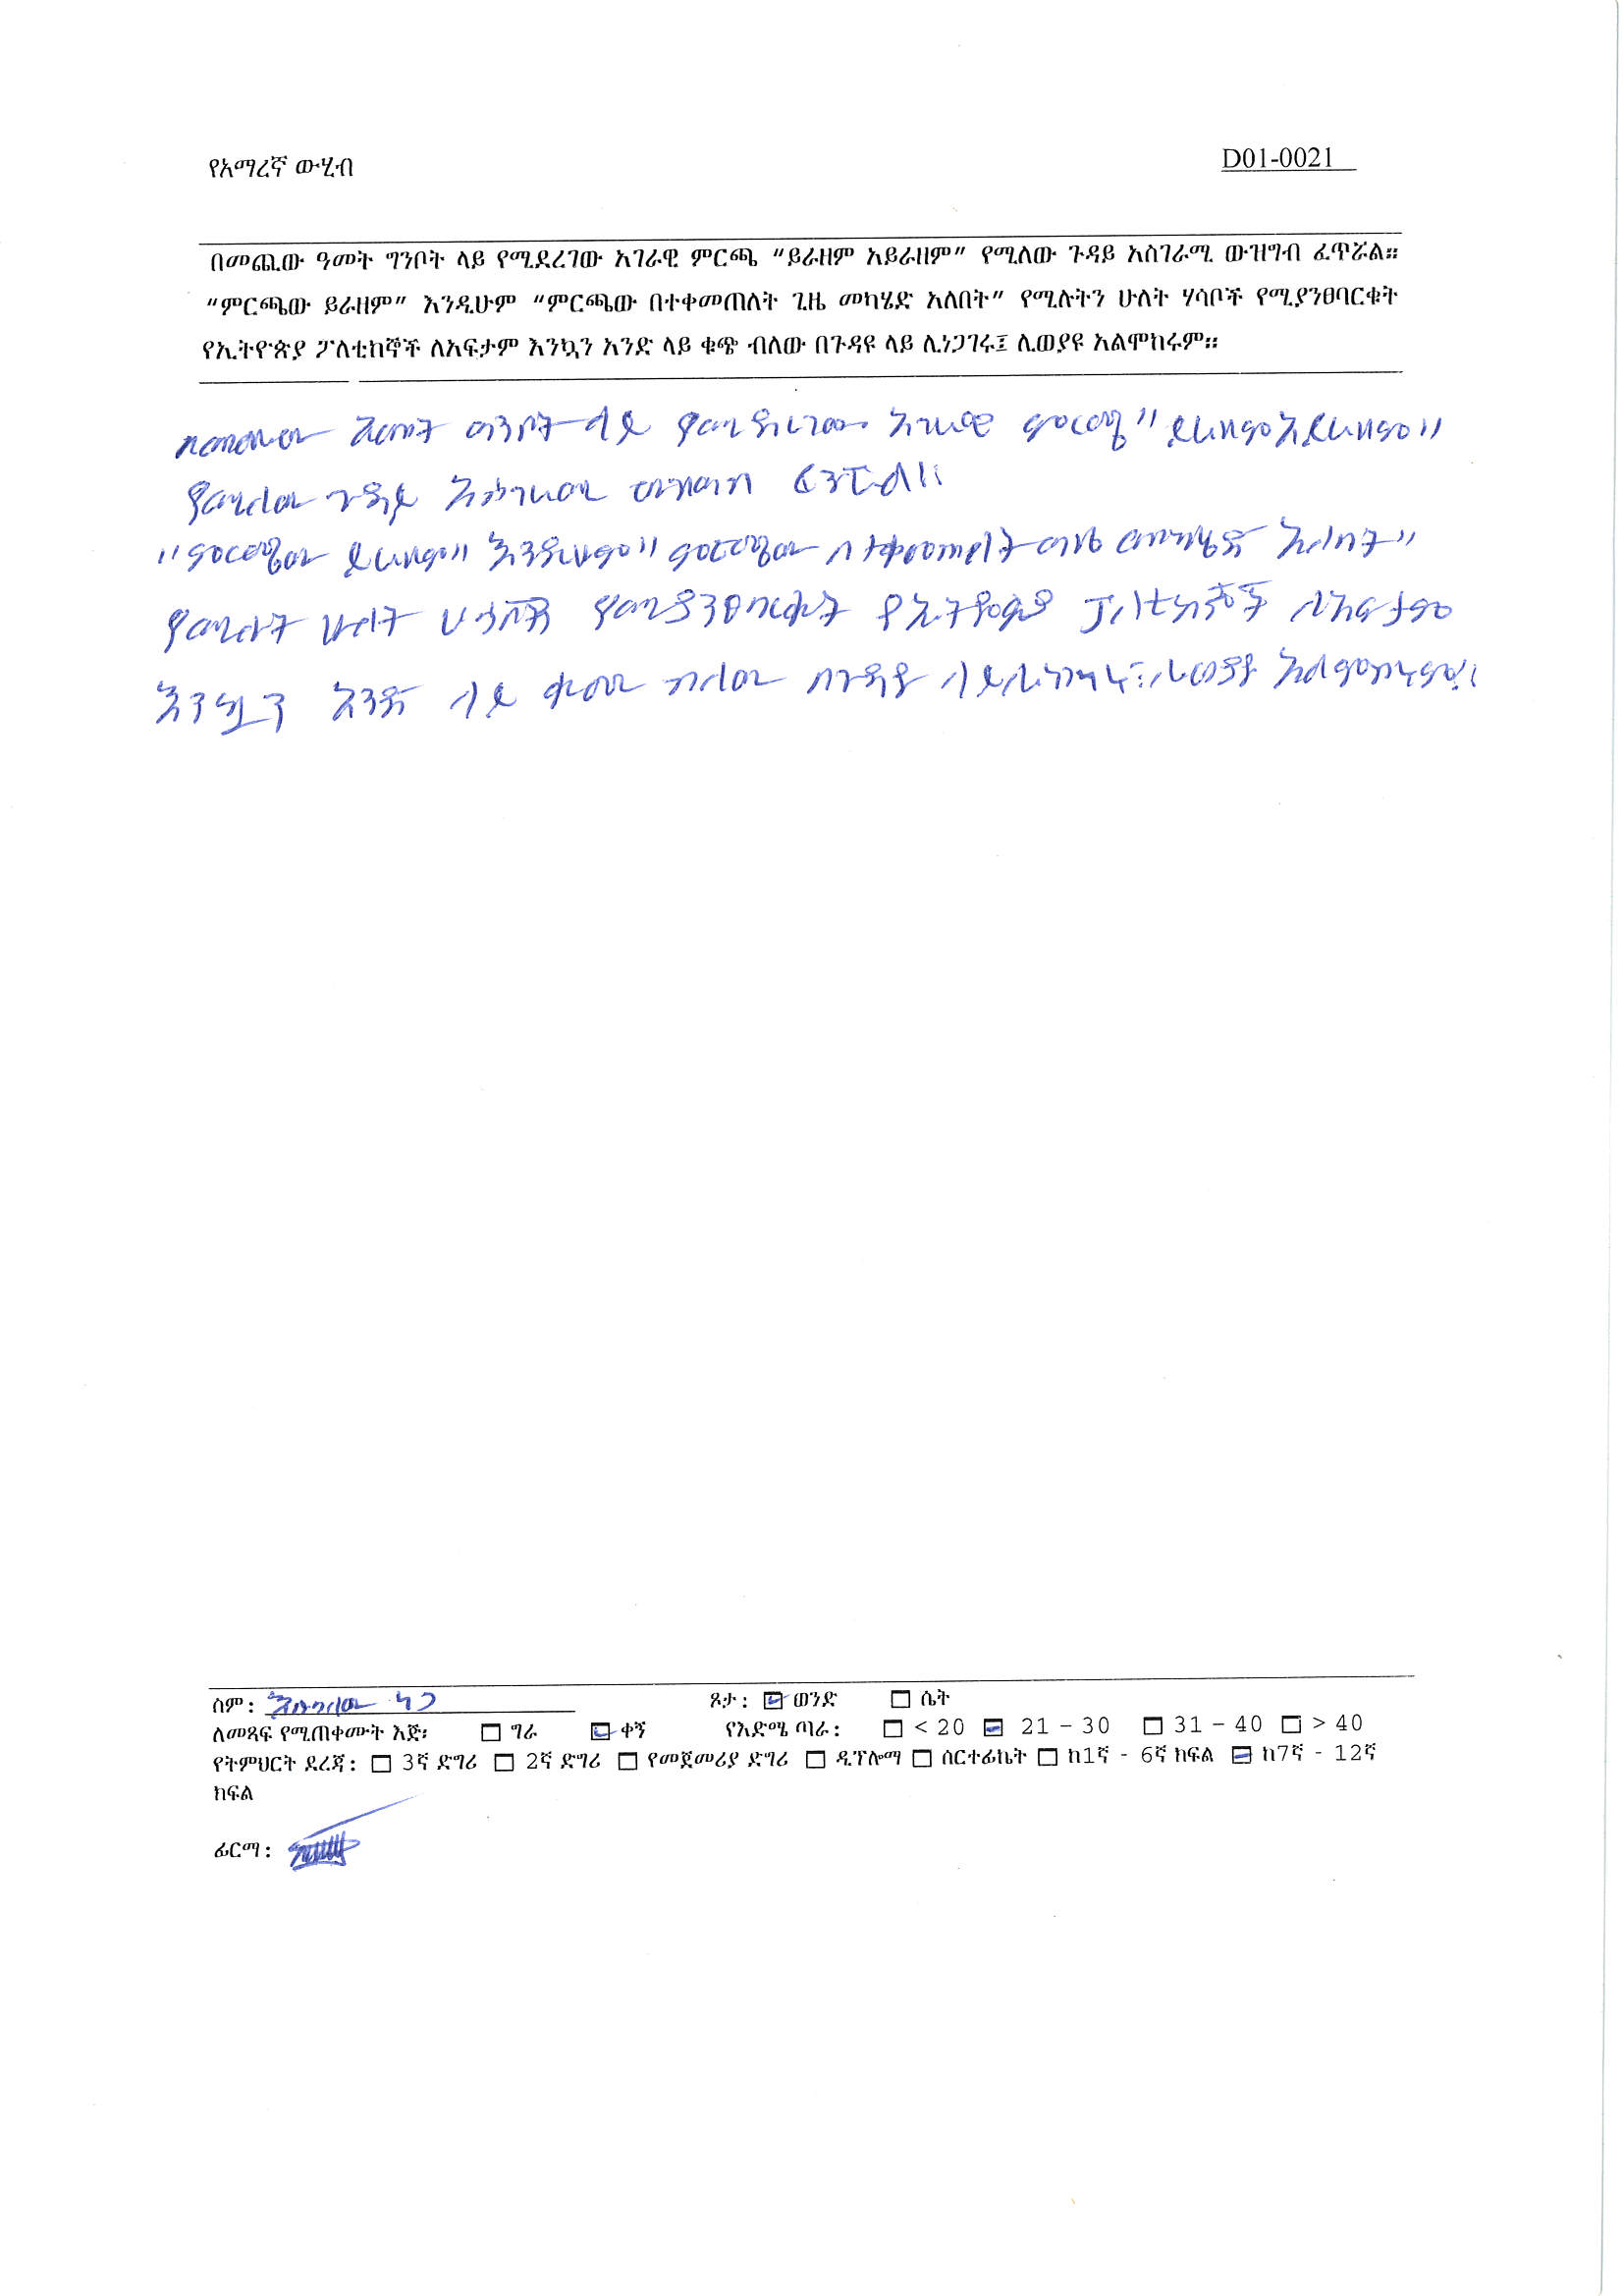 የአማረኛ ውሂብ
D01-0021
በመጪው ዓመት ግንቦት ላይ የሚደረገው አገራዊ ምርጫ “ይራዘም አይራዘም” የሚለው ጉዳይ አስገራሚ ውዝግብ ፈጥሯል።
“ምርጫው ይራዘም” እንዲሁም “ምርጫው በተቀመጠለት ጊዜ መካሄድ አለበት” የሚሉትን ሁለት ሃሳቦች የሚያንፀባርቁት
የኢትዮጵያ ፖለቲከኞች ለአፍታም እንኳን አንድ ላይ ቁጭ ብለው በጉዳዩ ላይ ሊነጋገሩ፤ ሊወያዩ አልሞከሩም።
በመጪው አመት ግንቦት ላይ የሚደረገው አገራዊ ምርጫ "ይራዘም አይራዘም"
የሚለው ጉዳይ አስገራሚ ውዝግብ ፈጥሯል።
"ምርጫው ይራዘም" እንዲሁም "ምርጫው በተቀመጠለት ጊዜ መካሄድ አለበት"
የሚሉት ሁለት ሀሳቦች የሚያንፀባርቁት የኢትዮጵያ ፖለቲከኞች ለአፍታም
እንኳን አንድ ላይ ቁጭ ብለው በጉዳዩ ላይ ሊነጋገሩ፤ ሊወያዩ አልሞከሩም።
ስም:
ጾታ: ወንድ ሴት
ለመጻፍ የሚጠቀሙት እጅ፡ ግራ ቀኝ የእድሜ ጣራ: < 20 21 – 30 31 – 40 > 40
የትምህርት ደረጃ: 3ኛ ድግሪ 2ኛ ድግሪ የመጀመሪያ ድግሪ ዲፕሎማ ሰርተፊኬት ከ1ኛ - 6ኛ ክፍል ከ7ኛ - 12ኛ
ክፍል
ፊርማ: